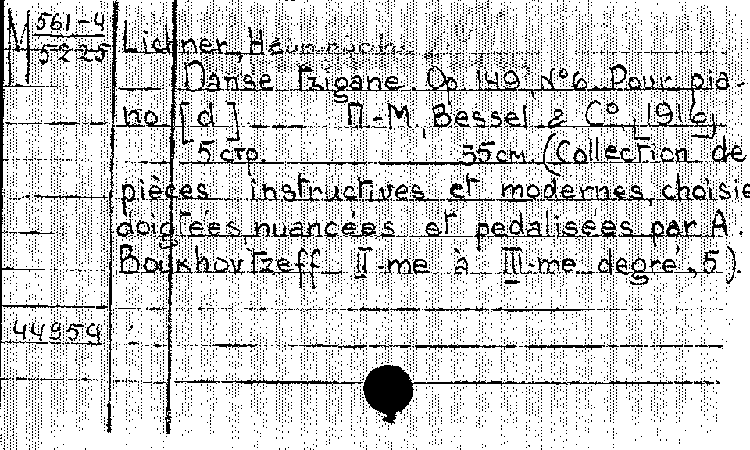 М 561-4
5225
Lichner, H
Danse Tzigane. Op 149 N°6. Pour pia-
no [d] П.-М., Bessel & C°, [1916]
5 стр. 35см. (Collection de
pièces instructives et modernes, choisie
doigtées nuancées et pedalisées par A.
Boukhovtzeff II-me à III-me degré, 5).
44959